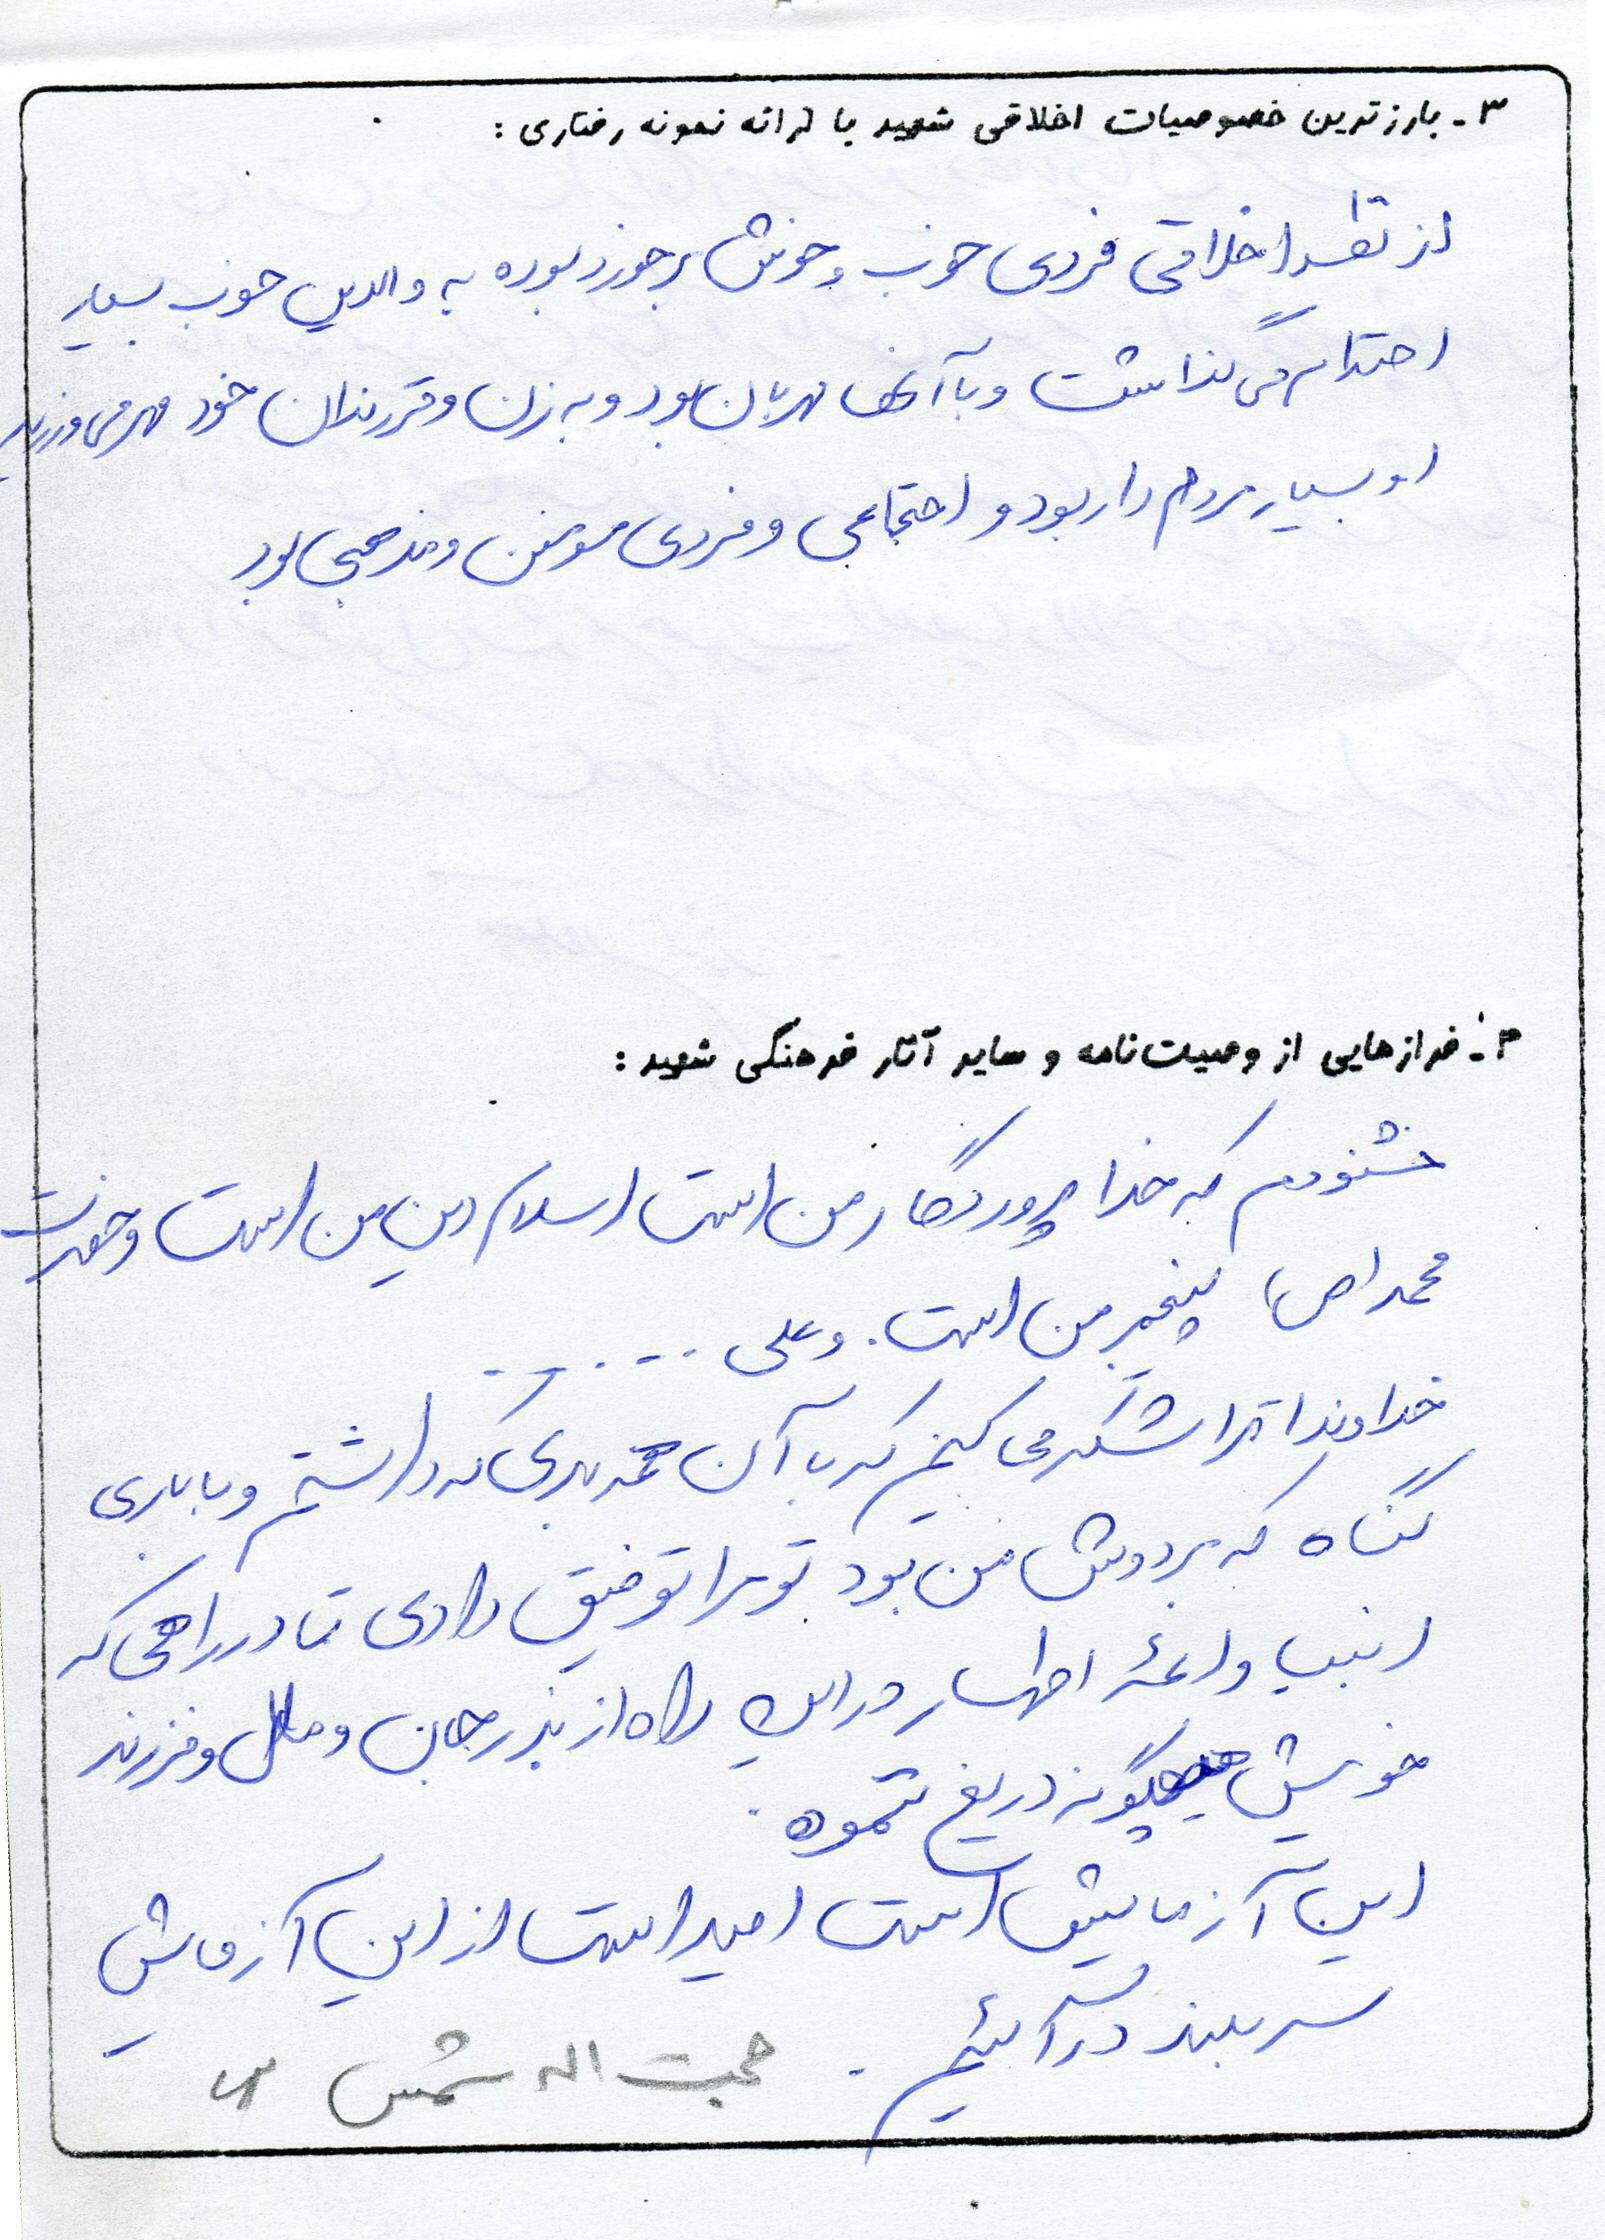 ۳- بارزترین خصوصیات اخلاقی شهید با ارائه نمونه رفتاری :
از نظر اخلاقی فردی خوب و خوش برخورد بوده به والدین خوب بسیار
احترام می گذاشت و با آنها مهربان بود و به زن و فرزندان خود مهر می ورزید
او بسیار مردم دار بود و اجتماعی و فردی مومن و مذهبی بود
۴- فرازهایی از وصیت‌نامه و سایر آثار فرهنگی شهید :
خشنودم که خدا پروردگار من است اسلام دین من است و حضرت
محمد (ص) پیغمبر من است. و علی ........
خداوندا ترا شکر می کنیم که با آن همه بدی که داشتم و با باری
گناه که بر دوش من بود تو مرا توفیق دادی تا در راهی که
انبیا و ائمه اطهار در این راه از بذر جان و مال و فرزند
خویش هیچگونه دریغ ننموده.
این آزمایش است امید است از این آزمایش
سربلند در آئیم.
حجت اله شمس